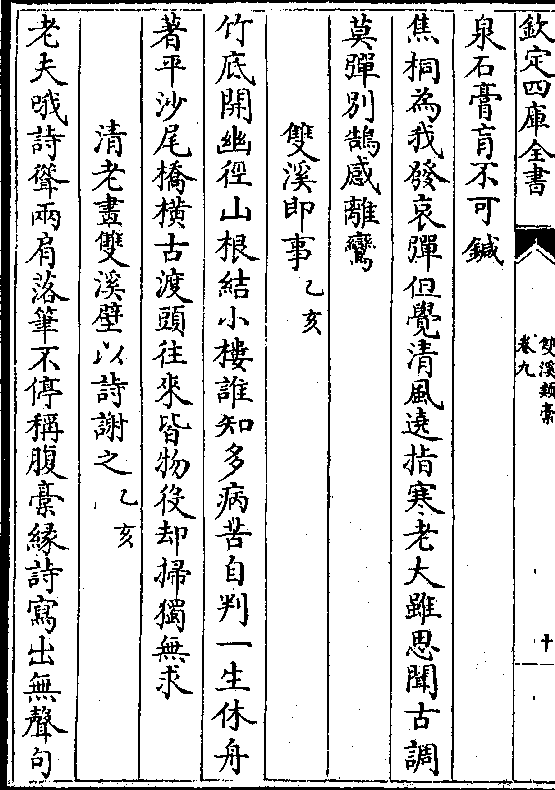 欽定四庫全書
雙溪類稾
卷九
十
泉石膏肓不可鍼
焦桐為我發哀彈但覺清風遶指寒老大雖思聞古調
莫彈別鵠感離鸞
雙溪即事乙亥
竹底開幽徑山根結小樓誰知多病苦自判一生休舟
著平沙尾橋橫古渡頭往來皆物役却掃獨無求
清老畫雙溪壁以詩謝之乙亥
老夫哦詩聳兩肩落筆不停稱腹稾緣詩寫出無聲句